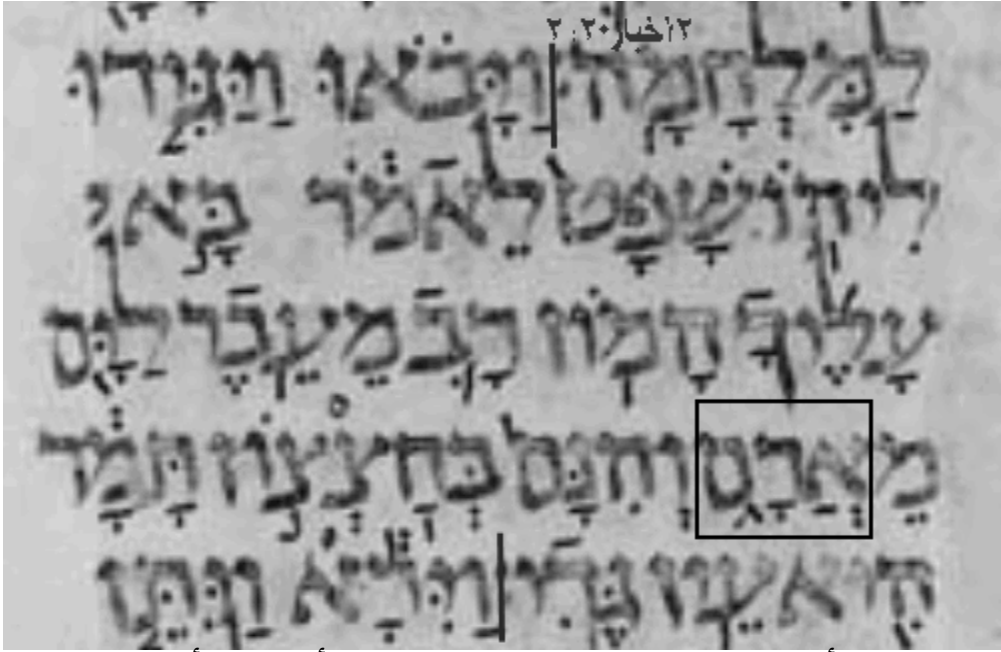 ٢اخبار٢٠: ٢
לַמִּלְחָמָה׃ וַיָּבֹאוּ וַיַּגִּידוּ
לִיהוֹשָׁפָט לֵאמֹר בָּא
עָלֶיךָ הָמוֹן רָב מֵעֵבֶר לַיָּם
מֵאֲרָם וְהִנָּם בְּחַצְצוֹן תָּמָר
הִיא עֵין גֶּדִי׃ וַיִּרָא וַיִּתֵּן